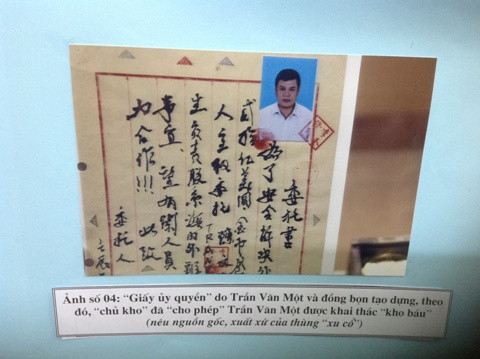 委托書
为了安全解决外
拾亿美圓
人主权委托
生负责
事宜、望有關人員
力合作!!! 此致
委托人
Ảnh số 04: “Giấy ủy quyền” do Trần Văn Một và đồng bọn tạo dựng, theo
đó, “chủ kho” đã “cho phép” Trần Văn Một được khai thác “kho báu”
(nêu nguồn gốc, xuất xứ của thùng “xu cổ”)